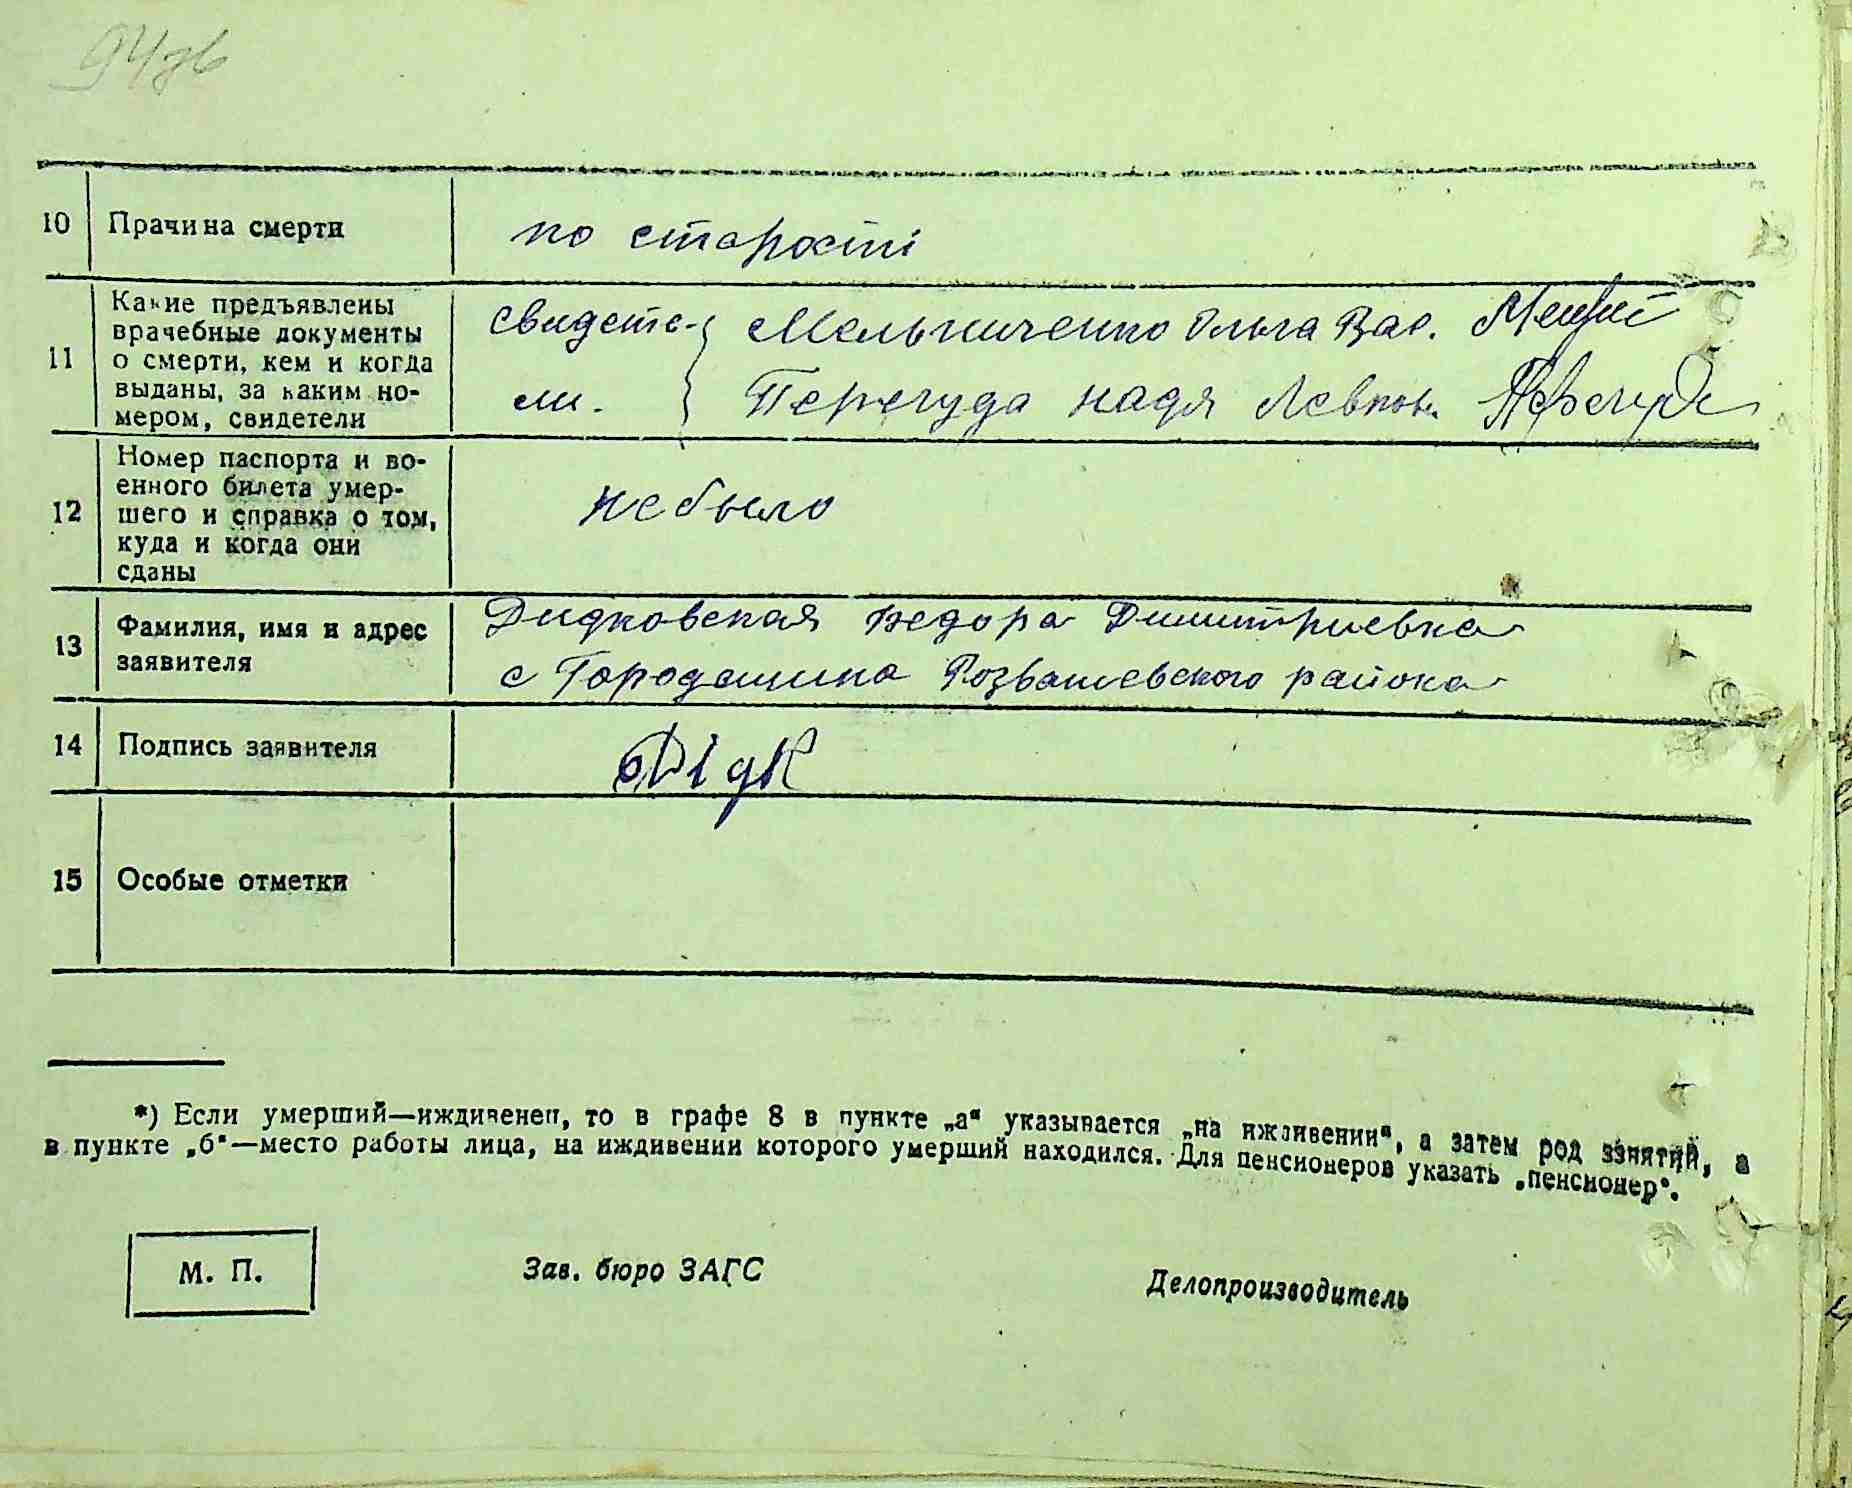 94зв
10 Причина смерти по старості
11 Какие предъявлены врачебные документы о смерти, кем и когда выданы, за каким номером, свидетели
свидете- Мельниченко Ольга Вас.
ли. Перегуда надя Левкон.
12 Номер паспорта и во-
енного билета умер-
шего и справка о том,
куда и когда они
сданы
не было
13 Фамилия, имя и адрес
заявителя
Дидковская Федора Димитриевна
с Городещина Розважевского района
14 Подпись заявителя Дідк
15 Особые отметки
*) Если умерший—иждивенец, то в графе 8 в пункте „а“ указывается „на иждивении“, а затем род занятий, а
в пункте „б“—место работы лица, на иждивении которого умерший находился. Для пенсионеров указать „пенсионер“.
М. П. Зав. бюро ЗАГС Делопроизводитель